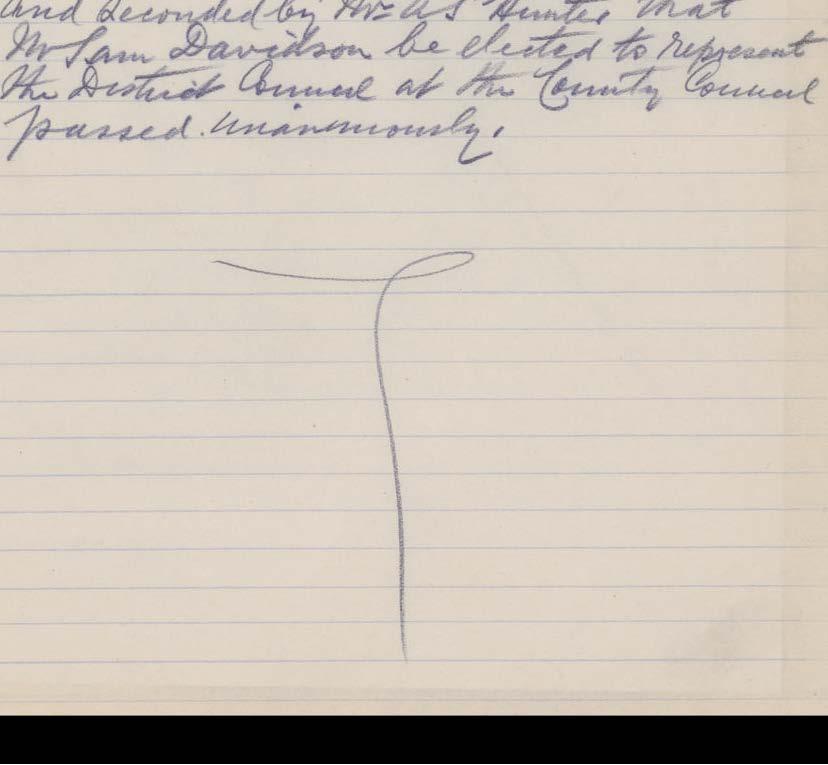 and seconded by Mr A S Hunter that
Mr Sam Davidson be elected to represent
the District Council at the County Council
passed. unanimously.